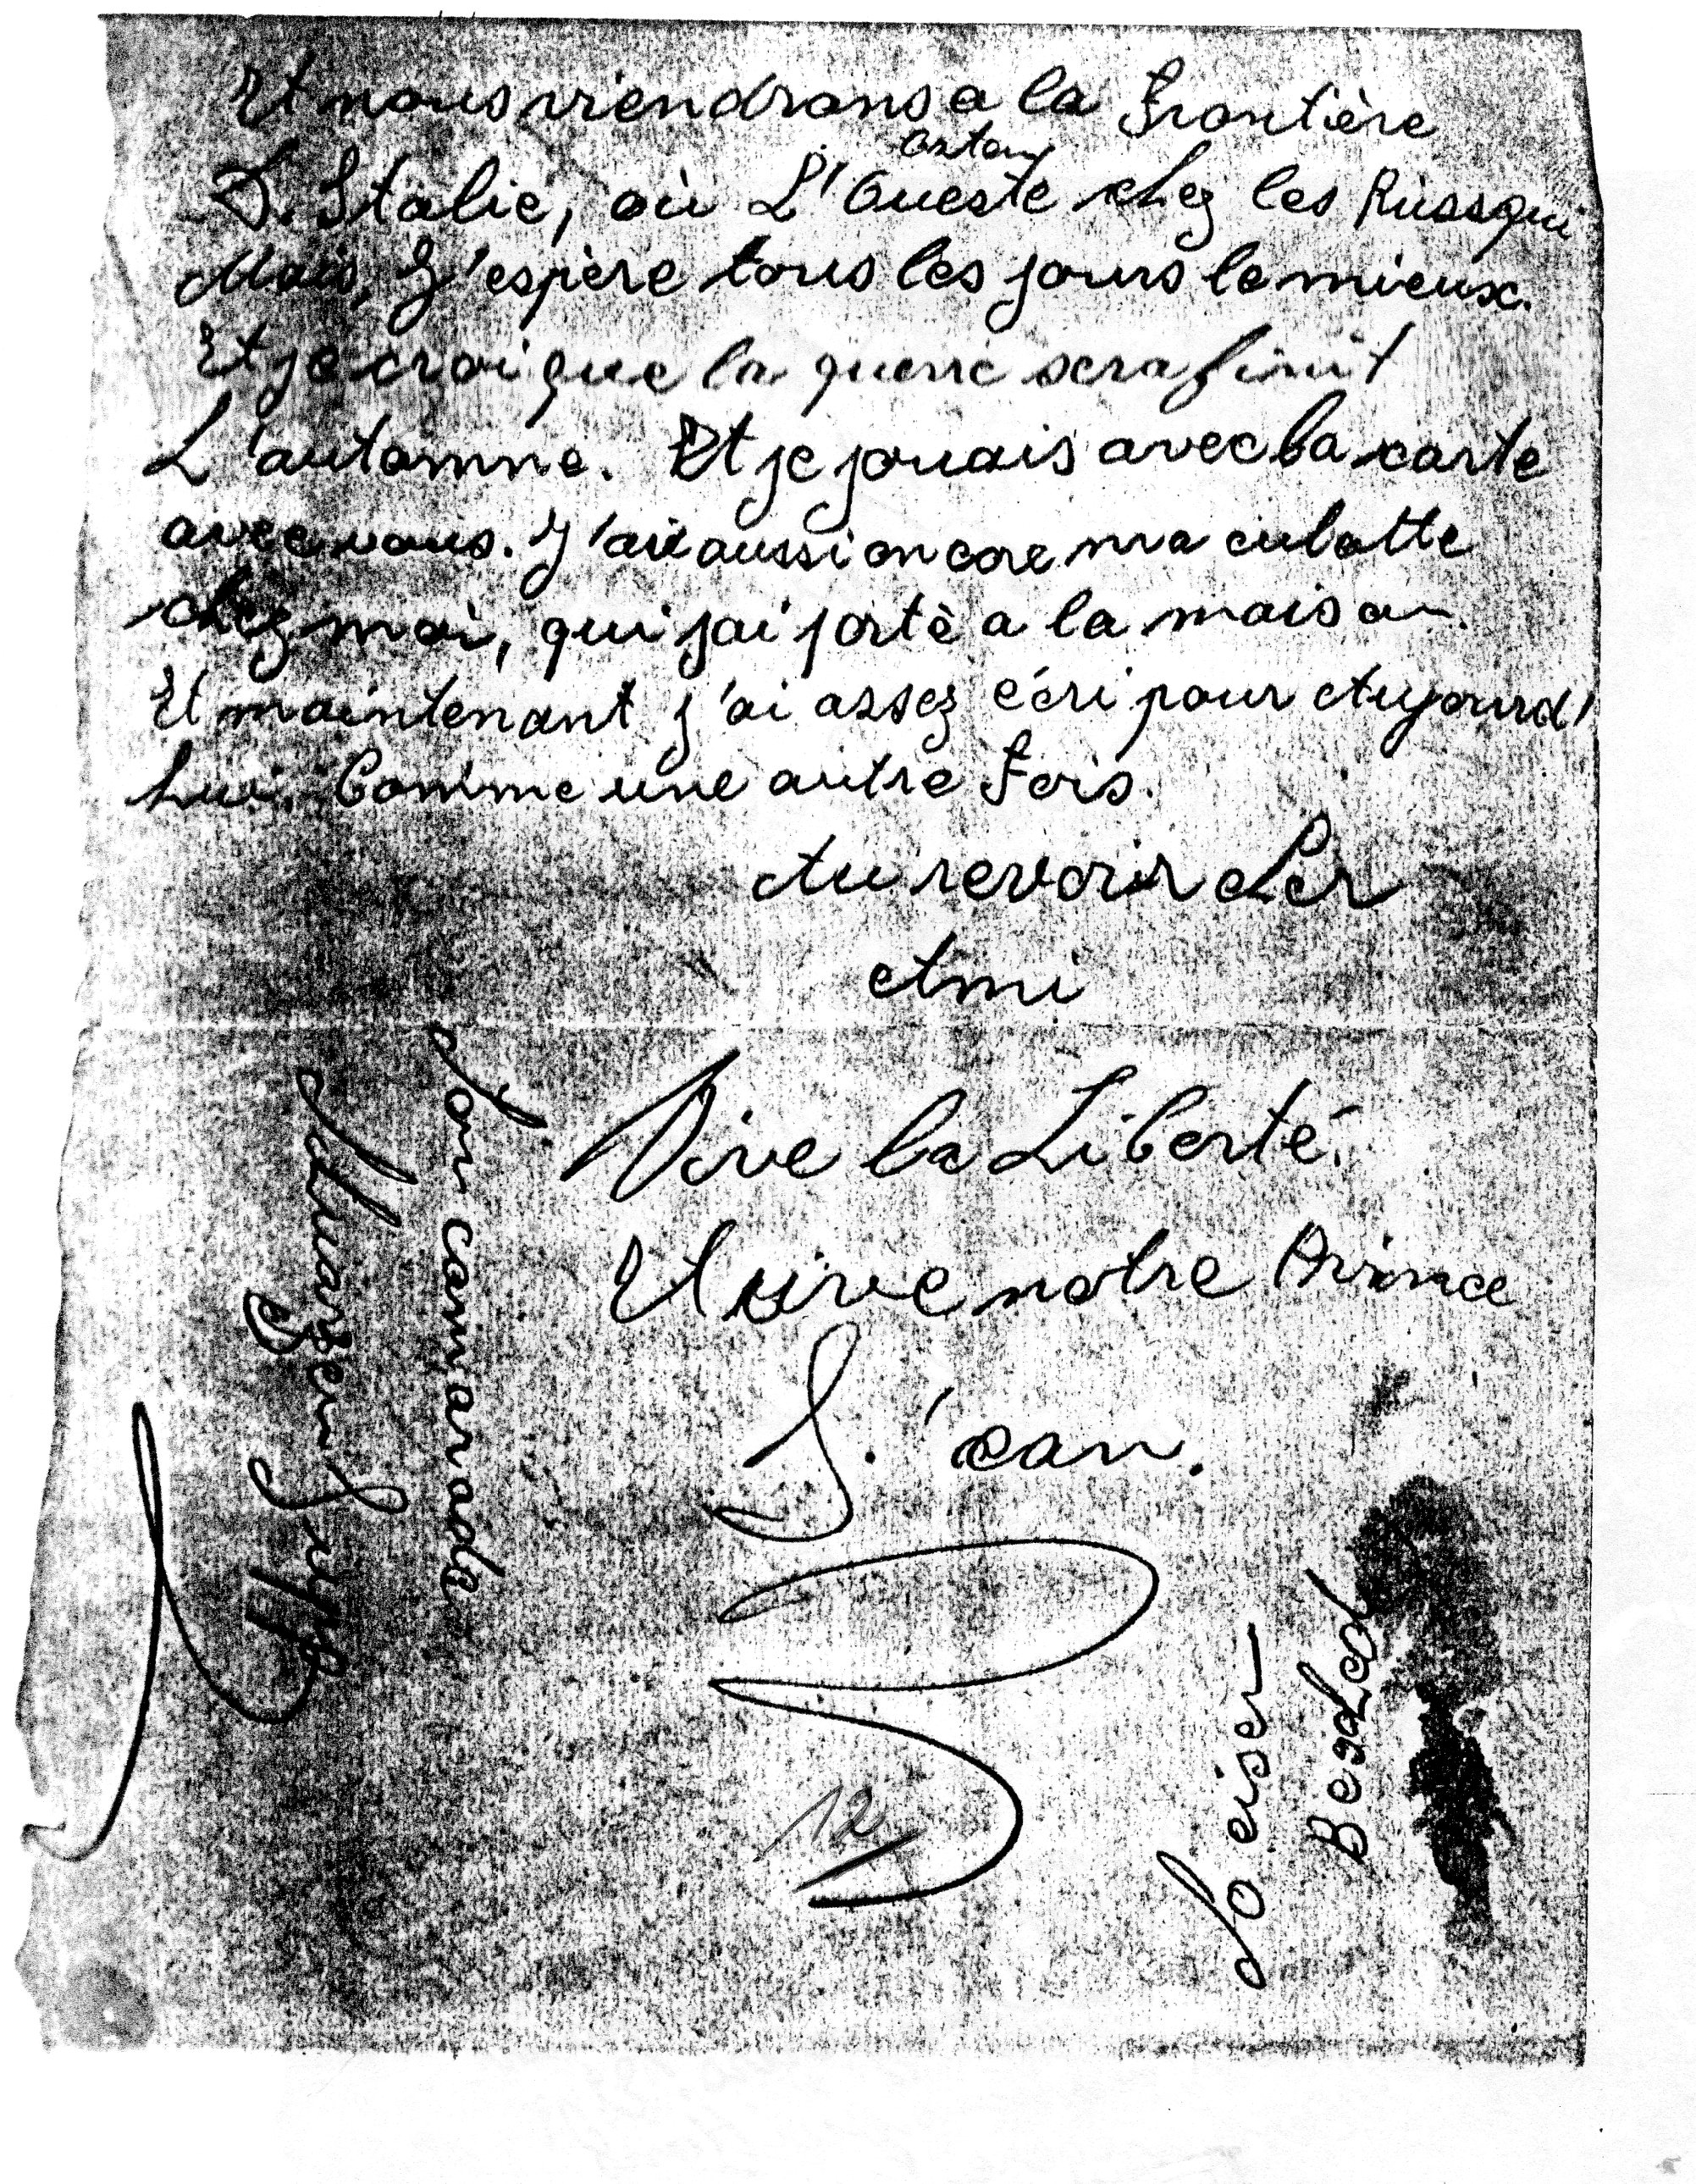 Et nous viendrons a la Frontière
D. Italie, où L'Oueste chez les Russqui
Mais, J'espère tous les jours le mieux.
Et je croi que la guerre sera finit
L'automne. Et je jouais avec la carte
avec vous. J'ai aussi oncore ma culotte
chez moi, qui j'ai porté a la maison.
Et maintenant j'ai assez écri pour Aujourd'
hui. Comme une autre Fois.
Au revoir cher
Ami
Vive la Liberté.
Et vive notre Prince
J.'ean.
Ton camarade
Jupp
12